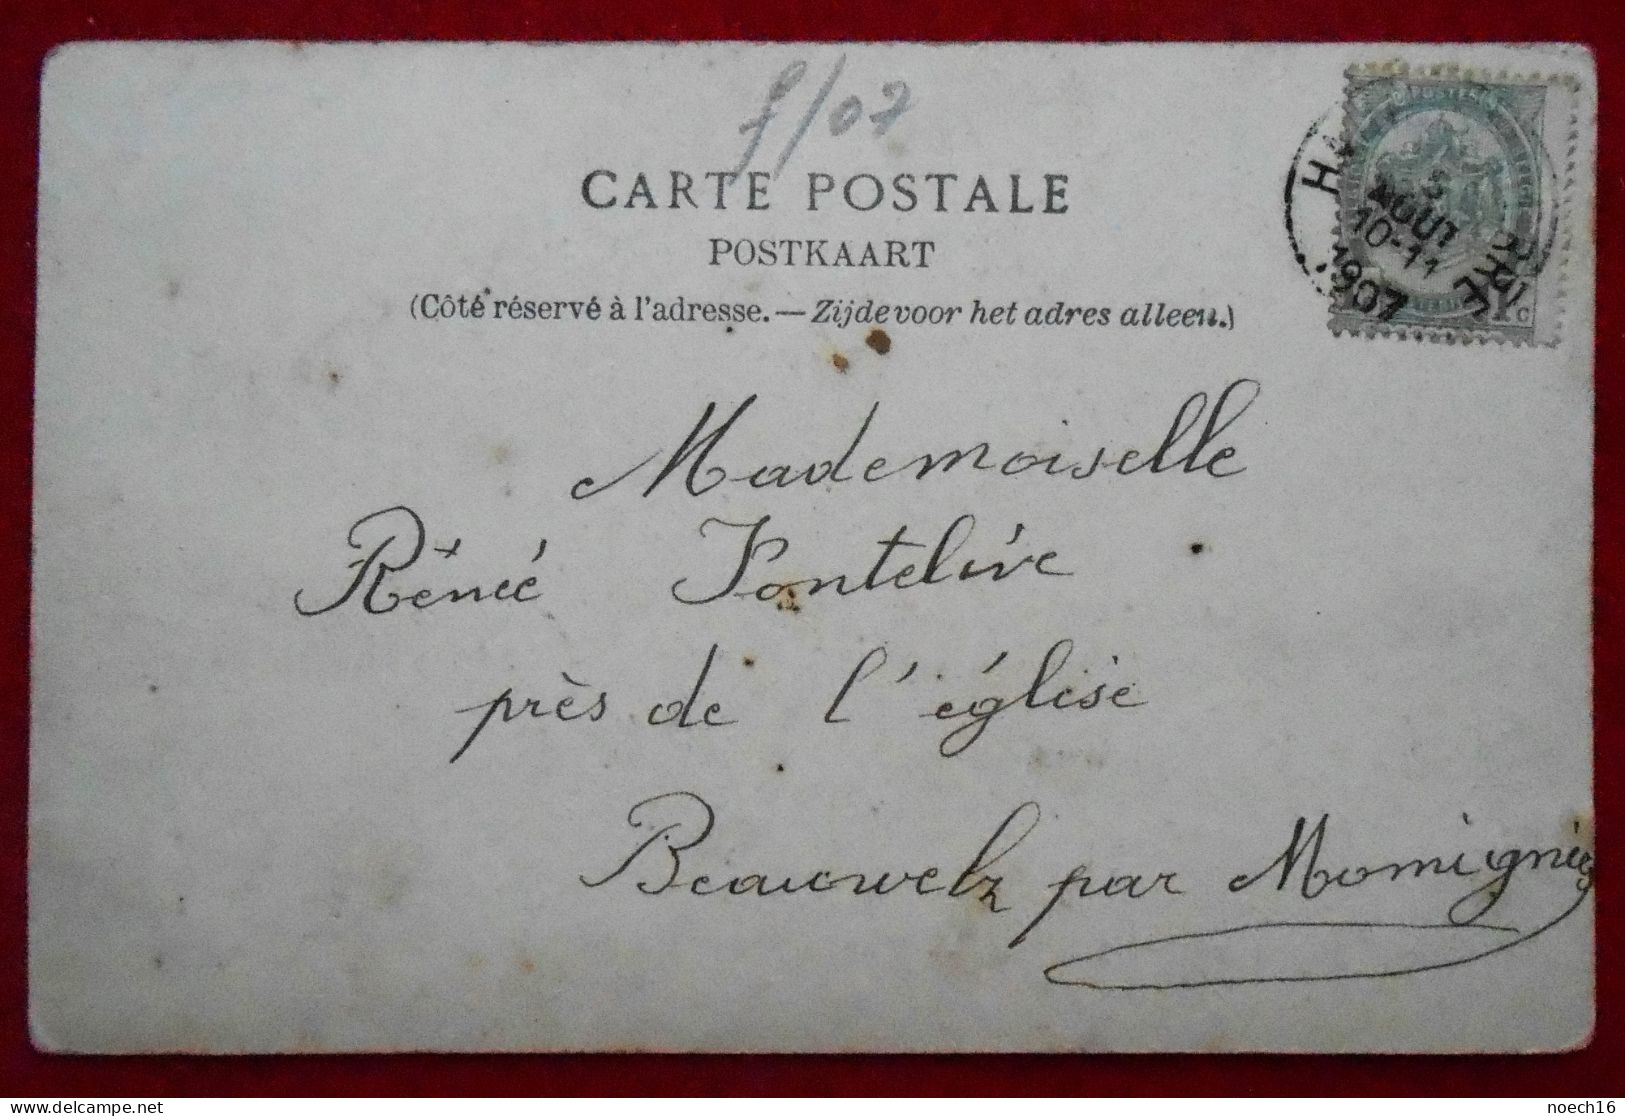 f/07
CARTE POSTALE
POSTKAART
(Côté réservé à l'adresse.—Zijde voor het adres alleen.)
5
AOUT
10-11
1907
Mademoiselle
Rénée Fontelive
près de l'église
Beauwelz par Momignies
noech16